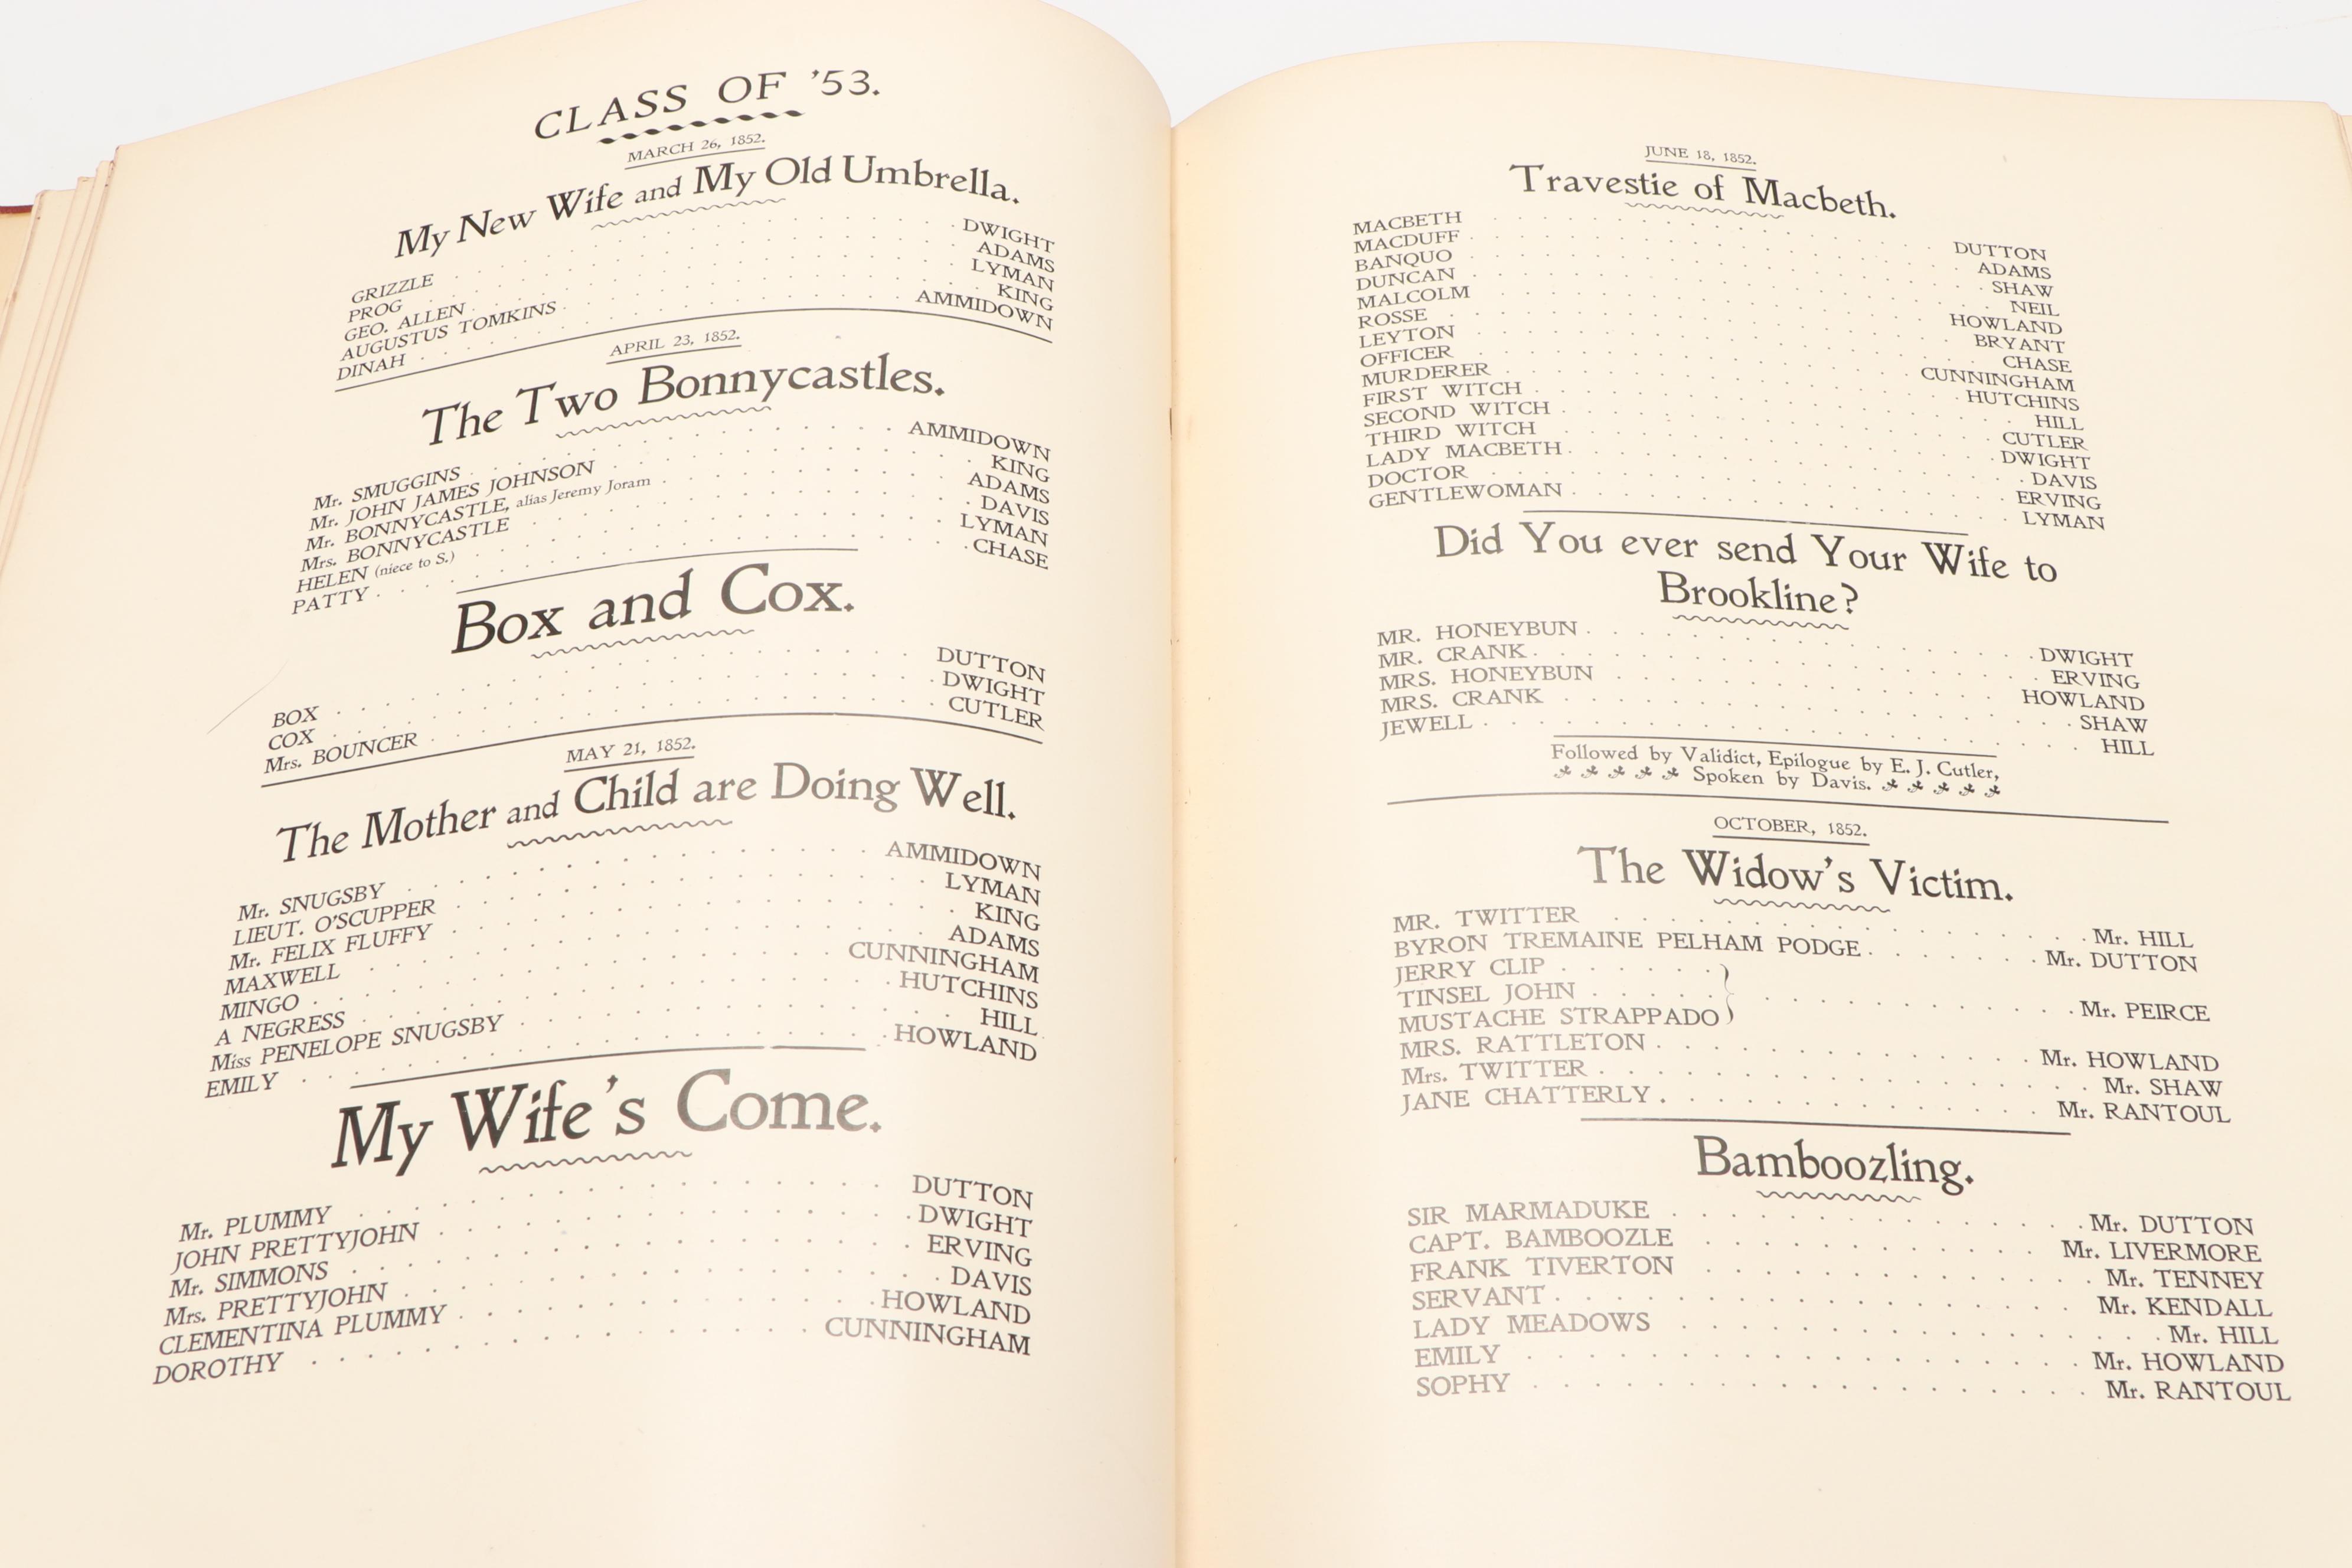 CLASS OF '53.
MARCH 26, 1852.
My New Wife and My Old Umbrella.
GRIZZLE . . . . DWIGHT
PROG . . . . ADAMS
GEO. ALLEN . . . . LYMAN
AUGUSTUS TOMKINS . . . . KING
DINAH . . . . AMMIDOWN
APRIL 23, 1852.
The Two Bonnycastles.
Mr. SMUGGINS . . . . AMMIDOWN
Mr. JOHN JAMES JOHNSON . . . . KING
Mr. BONNYCASTLE, alias Jeremy Joram . . . . ADAMS
Mrs. BONNYCASTLE . . . . DAVIS
HELEN (niece to S.) . . . . LYMAN
PATTY . . . . CHASE
Box and Cox.
BOX . . . . DUTTON
COX . . . . DWIGHT
Mrs. BOUNCER . . . . CUTLER
MAY 21, 1852.
The Mother and Child are Doing Well.
Mr. SNUGSBY . . . . AMMIDOWN
LIEUT. O'SCUPPER . . . . LYMAN
Mr. FELIX FLUFFY . . . . KING
MAXWELL . . . . ADAMS
MINGO . . . . CUNNINGHAM
A NEGRESS . . . . HUTCHINS
Miss PENELOPE SNUGSBY . . . . HILL
EMILY . . . . HOWLAND
My Wife's Come.
Mr. PLUMMY . . . . DUTTON
JOHN PRETTYJOHN . . . . DWIGHT
Mr. SIMMONS . . . . ERVING
Mrs. PRETTYJOHN . . . . DAVIS
CLEMENTINA PLUMMY . . . . HOWLAND
DOROTHY . . . . CUNNINGHAM
JUNE 18, 1852.
Travestie of Macbeth.
MACBETH . . . . DUTTON
MACDUFF . . . . ADAMS
BANQUO . . . . SHAW
DUNCAN . . . . NEIL
MALCOLM . . . . HOWLAND
ROSSE . . . . BRYANT
LEYTON . . . . CHASE
OFFICER . . . . CUNNINGHAM
MURDERER . . . . HUTCHINS
FIRST WITCH . . . . HILL
SECOND WITCH . . . . CUTLER
THIRD WITCH . . . . DWIGHT
LADY MACBETH . . . . DAVIS
DOCTOR . . . . ERVING
GENTLEWOMAN . . . . LYMAN
Did You ever send Your Wife to
Brookline?
MR. HONEYBUN . . . . DWIGHT
MR. CRANK . . . . ERVING
MRS. HONEYBUN . . . . HOWLAND
MRS. CRANK . . . . SHAW
JEWELL . . . . HILL
Followed by Validict, Epilogue by E. J. Cutler,
Spoken by Davis.
OCTOBER, 1852.
The Widow's Victim.
MR. TWITTER . . . . Mr. HILL
BYRON TREMAINE PELHAM PODGE . . . . Mr. DUTTON
JERRY CLIP . . . .
TINSEL JOHN . . . . Mr. PEIRCE
MUSTACHE STRAPPADO
MRS. RATTLETON . . . . Mr. HOWLAND
Mrs. TWITTER . . . . Mr. SHAW
JANE CHATTERLY . . . . Mr. RANTOUL
Bamboozling.
SIR MARMADUKE . . . . Mr. DUTTON
CAPT. BAMBOOZLE . . . . Mr. LIVERMORE
FRANK TIVERTON . . . . Mr. TENNEY
SERVANT . . . . Mr. KENDALL
LADY MEADOWS . . . . Mr. HILL
EMILY . . . . Mr. HOWLAND
SOPHY . . . . Mr. RANTOUL